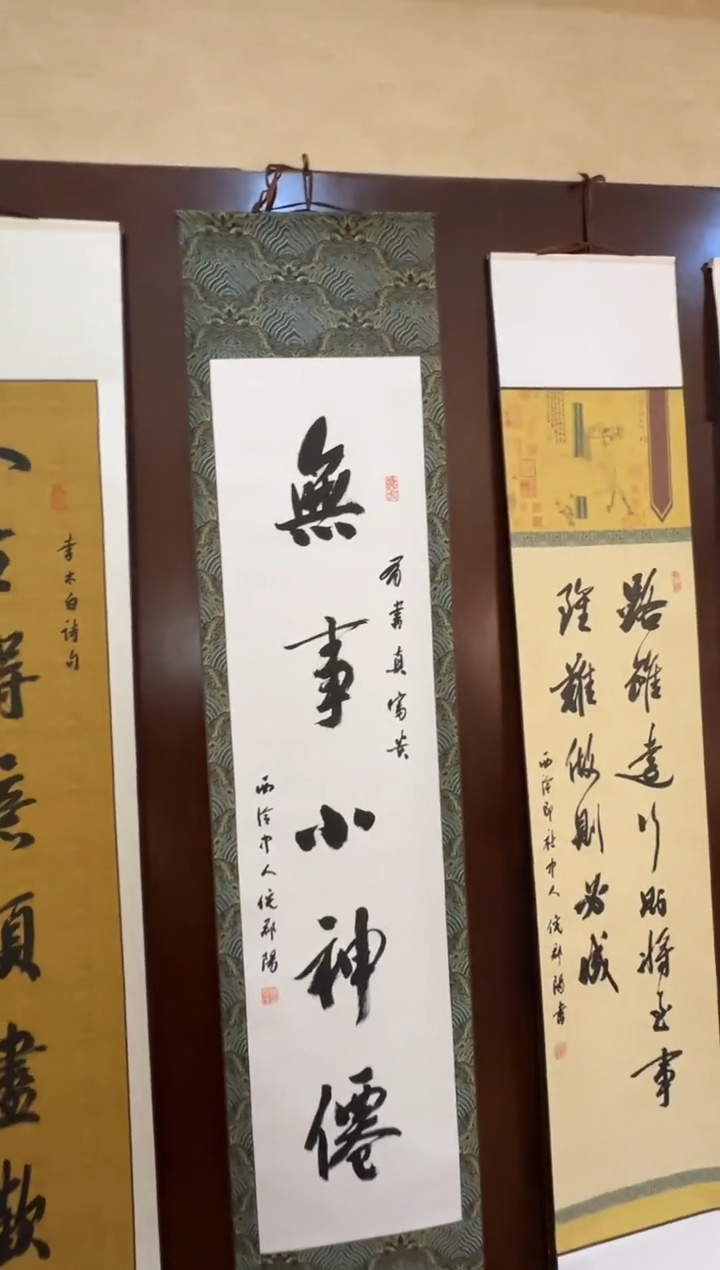 路雖遠行則將至事
雖難做則必成
西泠印社中人倪郡陽書
有書真富貴
無事小神僊
西泠中人倪郡陽
李太白詩句
得意須盡歡